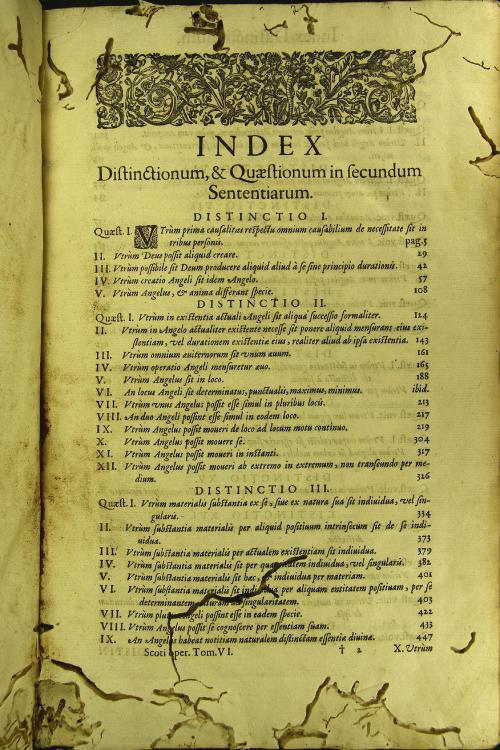 INDEX
Distinctionum, & Quæstionum in secundum
Sententiarum.
DISTINCTIO I.
Quæst. I. VTrùm prima causalitas respectu omnium causabilium de necessitate sit in
tribus personis. pag. 5
II. Vtrùm Deus possit aliquid creare. 29
III. Vtrùm possibile sit Deum producere aliquid aliud à se sine principio durationis. 42
IV. Vtrùm creatio Angeli sit idem Angelo. 57
V. Vtrùm Angelus, & anima differant specie. 108
DISTINCTIO II.
Quæst. I. Vtrùm in existentia actuali Angeli sit aliqua successio formaliter. 124
II. Vtrùm in Angelo actualiter existente necesse sit ponere aliquid mensurans eius exi-
stentiam, vel durationem existentiæ eius, realiter aliud ab ipsa existentia. 143
III. Vtrùm omnium æuiternorum sit vnum æuum. 161
IV. Vtrùm operatio Angeli mensuretur æuo. 165
V. Vtrùm Angelus sit in loco. 188
VI. An locus Angeli sit determinatus, punctualis, maximus, minimus. ibid.
VII. Vtrùm vnus Angelus possit esse simul in pluribus locis. 213
VIII. An duo Angeli possint esse simul in eodem loco. 217
IX. Vtrùm Angelus possit moueri de loco ad locum motu continuo. 219
X. Vtrùm Angelus possit mouere se. 304
XI. Vtrùm Angelus possit moueri in instanti. 317
XII. Vtrùm Angelus possit moueri ab extremo in extremum, non transeundo per me-
dium. 326
DISTINCTIO III.
Quæst. I. Vtrùm materialis substantia ex se, siue ex natura sua sit indiuidua, vel sin-
gularis. 334
II. Vtrùm substantia materialis per aliquid positiuum intrinsecum sit de se indi-
uidua. 373
III. Vtrùm substantia materialis per actualem existentiam sit indiuidua. 379
IV. Vtrùm substantia materialis sit per quantitatem indiuidua, vel singularis. 382
V. Vtrùm substantia materialis sit hæc, & indiuidua per materiam. 401
VI. Vtrùm substantia materialis sit indiuidua per aliquam entitatem positiuam, per se
determinantem naturam ad singularitatem. 403
VII. Vtrùm plures Angeli possint esse in eadem specie. 422
VIII. Vtrùm Angelus possit se cognoscere per essentiam suam. 433
IX. An Angelus habeat notitiam naturalem distinctam essentiæ diuinæ. 447
Scoti oper. Tom. VI. † 2 X. Vtrùm